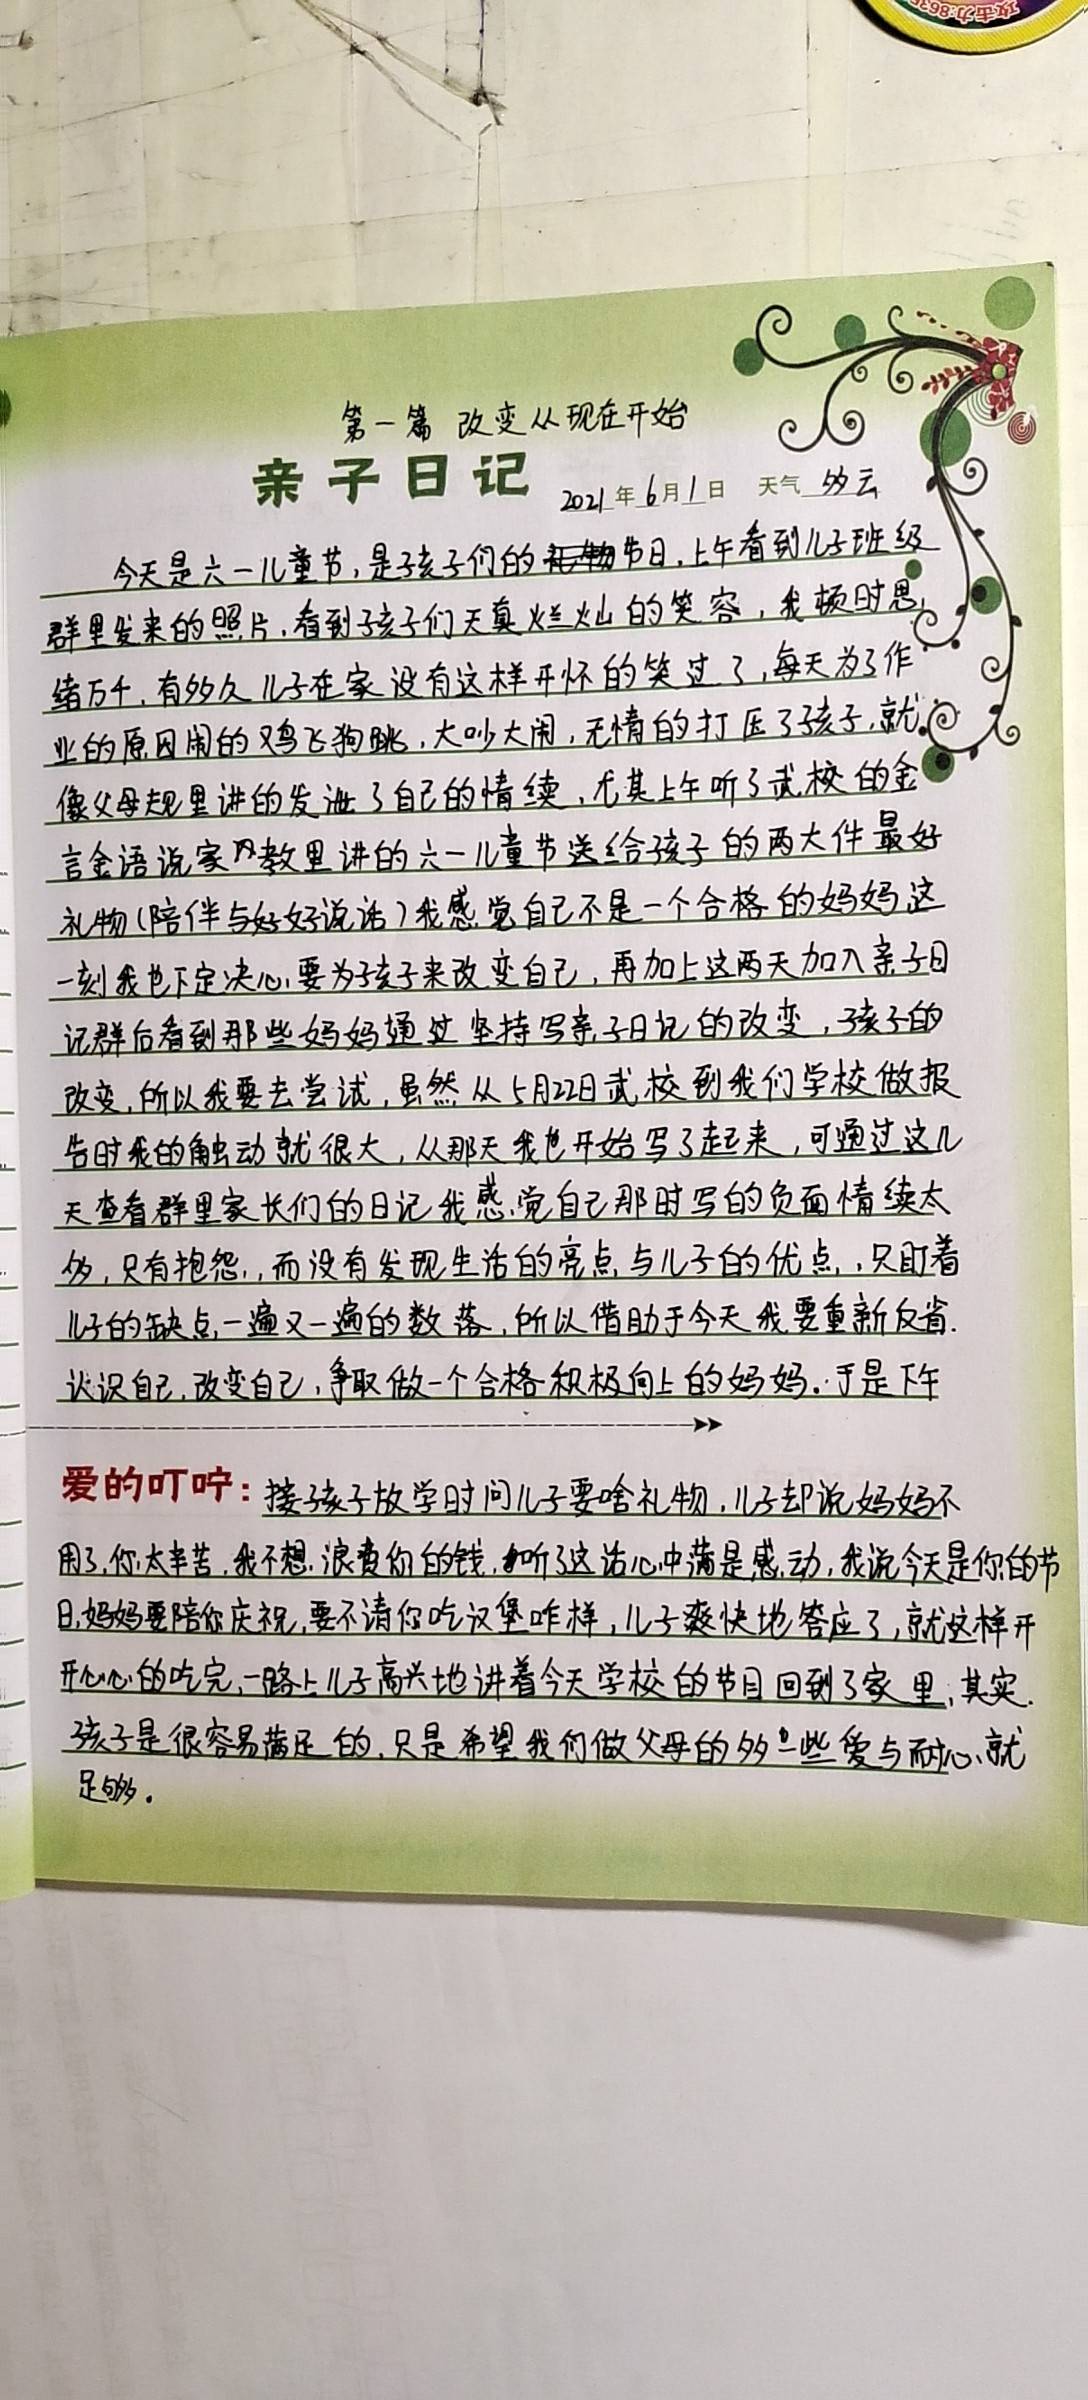 攻击力:863
第一篇 改变从现在开始
亲子日记 2021年6月1日 天气 多云
今天是六一儿童节,是孩子们的礼物节日,上午看到儿子班级
群里发来的照片,看到孩子们天真烂灿的笑容,我顿时思
绪万千,有多久儿子在家没有这样开怀的笑过了,每天为了作
业的原因闹的鸡飞狗跳,大吵大闹,无情的打压了孩子,就
像父母规里讲的发泄了自己的情续,尤其上午听了武校的金
言金语说家教里讲的六一儿童节送给孩子的两大件最好
礼物(陪伴与好好说话)我感觉自己不是一个合格的妈妈,这
一刻我也下定决心,要为孩子来改变自己,再加上这两天加入亲子日
记群后看到那些妈妈通过坚持写亲子日记的改变,孩子的
改变,所以我要去尝试,虽然从5月22日武校到我们学校做报
告时我的触动就很大,从那天我也开始写了起来,可通过这几
天查看群里家长们的日记我感觉自己那时写的负面情续太
多,只有抱怨,而没有发现生活的亮点与儿子的优点,只盯着
儿子的缺点,一遍又一遍的数落,所以借助于今天我要重新反省.
认识自己,改变自己,争取做一个合格积极向上的妈妈。于是下午
爱的叮咛:接孩子放学时问儿子要啥礼物,儿子却说妈妈不
用了,你太辛苦,我不想浪费你的钱,听了这话心中满是感动,我说今天是你的节
日,妈妈要陪你庆祝,要不请你吃汉堡咋样,儿子爽快地答应了,就这样开
开心心的吃完,一路上儿子高兴地讲着今天学校的节目回到了家里,其实.
孩子是很容易满足的,只是希望我们做父母的多一些爱与耐心,就
足够。